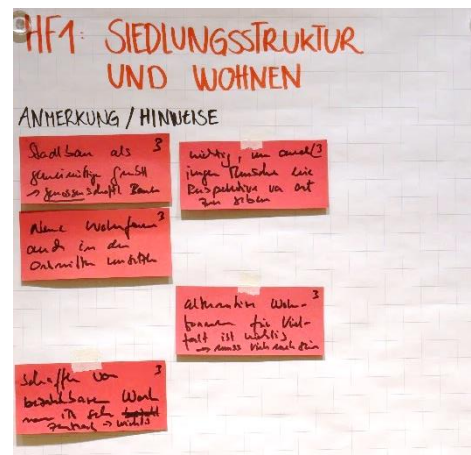 HF1: SIEDLUNGSSTRUKTUR
UND WOHNEN
ANMERKUNG / HINWEISE
3
Stadtbau als
gemeinnützige GmbH
→ genossenschaftl. Bauen
3
wichtig, um auch
jungen Menschen eine
Perspektive vor Ort
zu geben
3
Neue Wohnformen
auch in den
Ortsmitten umsetzen
3
alternative Wohn-
formen für Viel-
falt ist wichtig
→ muss
3
Schaffen von
bezahlbarem Wohn
raum ist sehr
zentral → wichtig